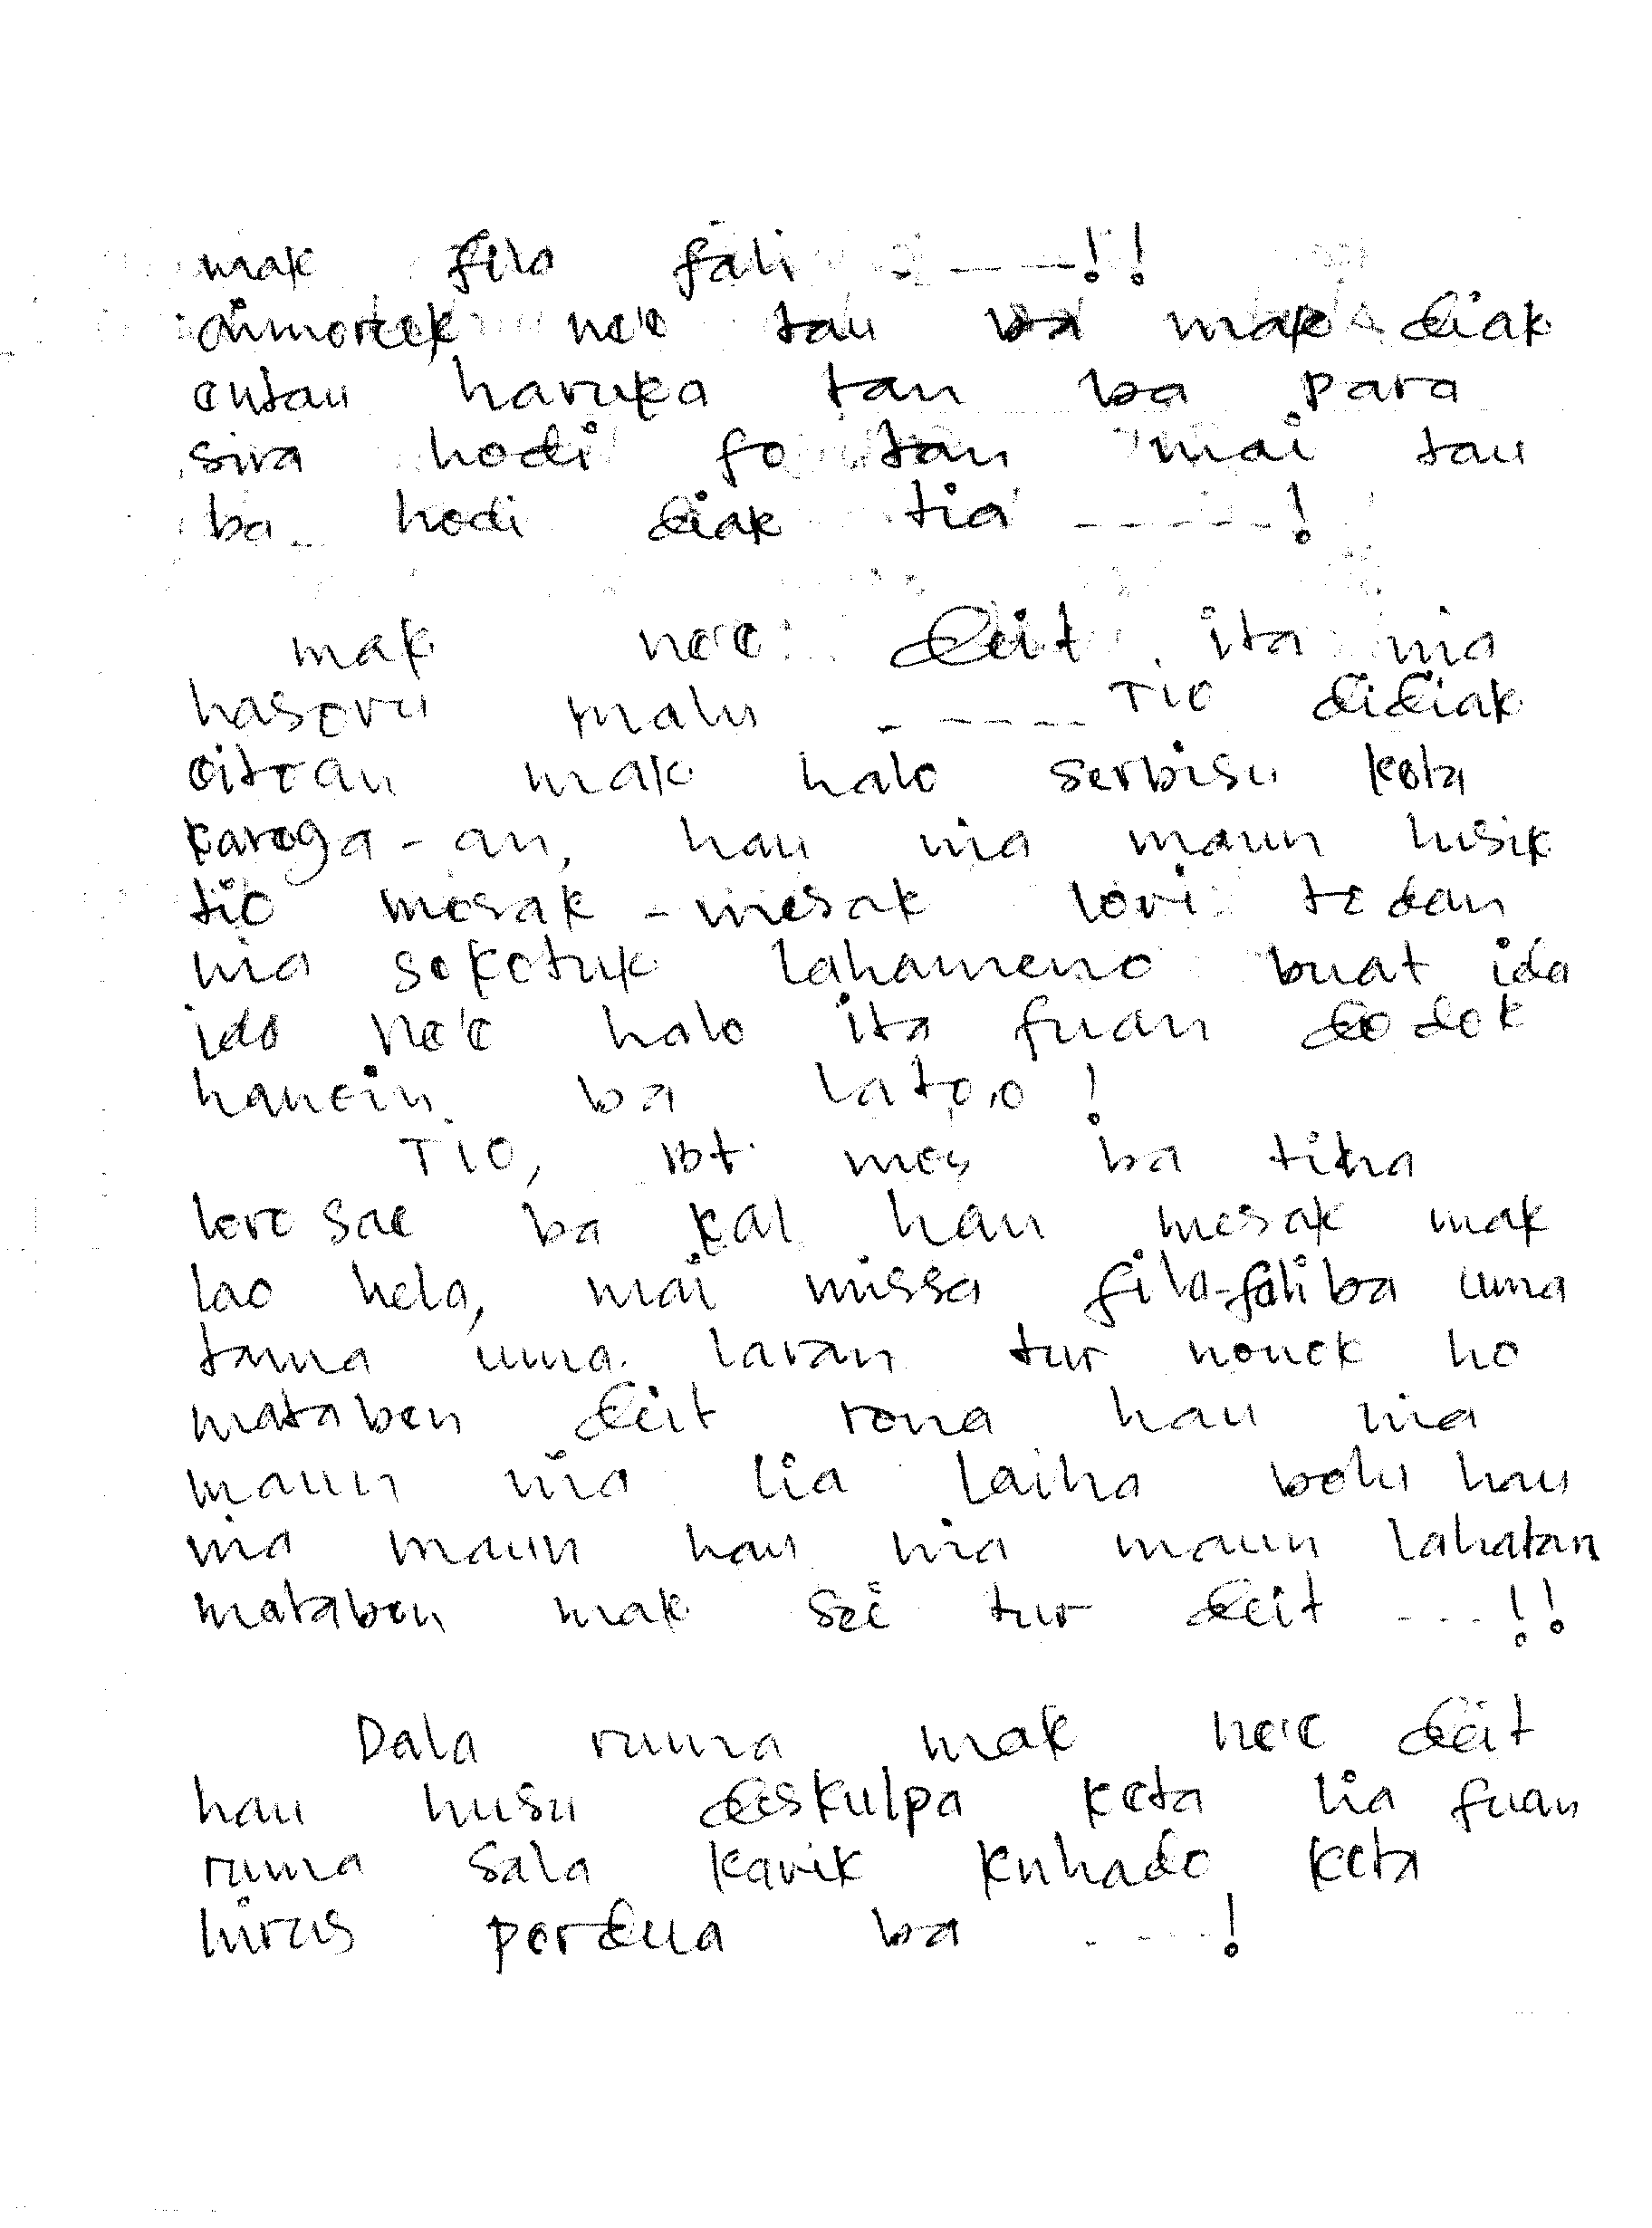 mak fila fali - - - - !!
aimoruk ne'e tau ba mak diak
entau haruka tan ba para
sira hodi fo tan mai tau
ba hodi diak tia - - - - - !
mak ne'e deit ita nia
hasoru malu - - - - - TIO didiak
oitoan mak halo serbisu keta
karoga-an, hau nia maun husik
tio mesak-mesak lori todan
nia seketuk lahameno buat ida
ida ne'e halo ita fuan dodok
hanoin ba lato,o !
TIO, mes ba tiha
loro sae ba kal hau mesak mak
lao hela, mai missa fila-fali ba uma
tama uma laran tur nonok ho
mataben deit rona hau nia
maun nia lia laiha bolu hau
nia maun hau nia maun lahatan
mataben mak sei tur deit - - - !!
Dala ruma mak ne'e deit
hau husu deskulpa keta lia fuan
ruma sala karik kuhado keta
hirus perdua ba - - - - !